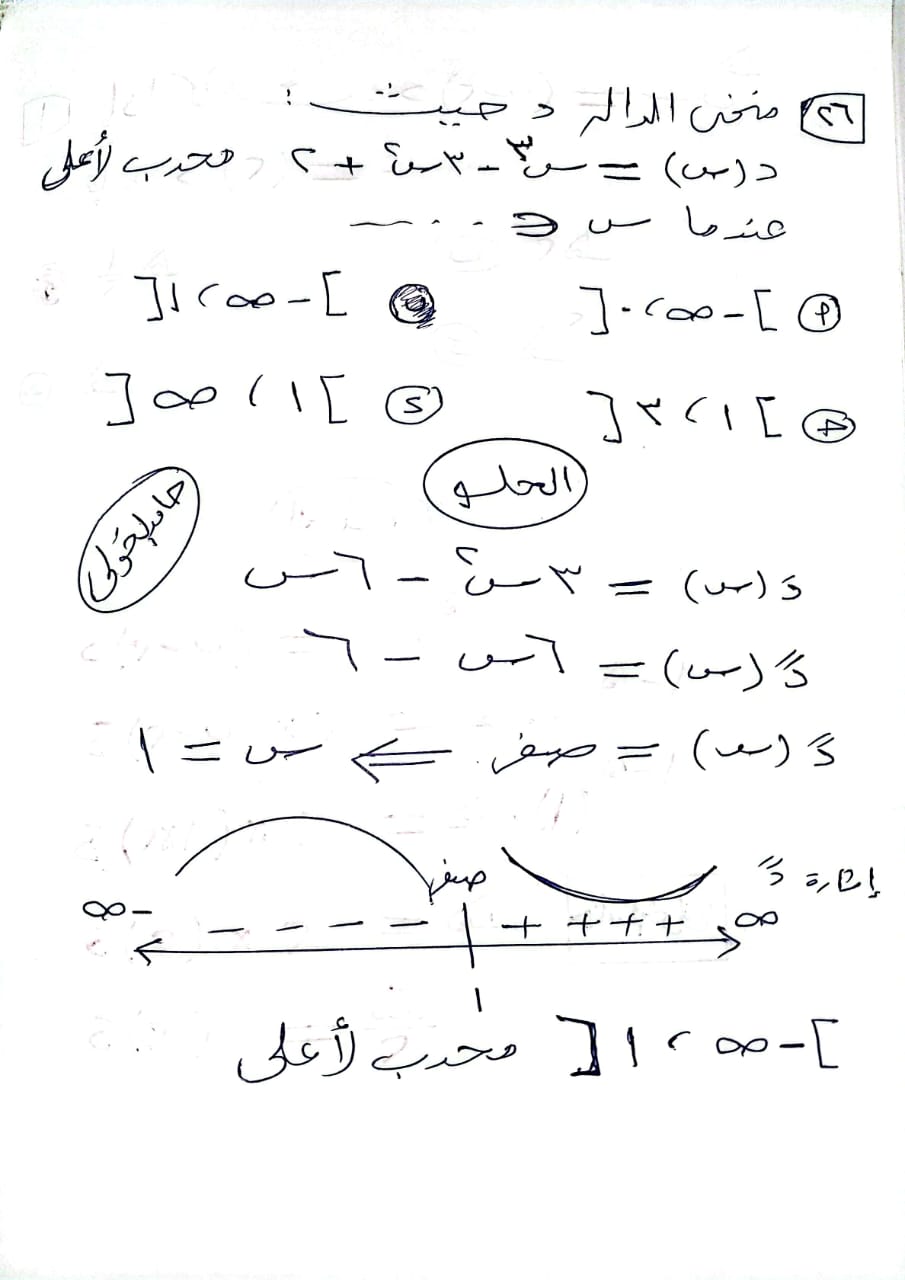 ٢٦ منحنى الدالة د حيث :
د(س) = س٣ - ٣س٢ + ٢ محدب لأعلى
عندما س ∈ ....
أ ]-∞، ٠[ ب ]-∞، ١[
ج ]١، ٣[ د ]١، ∞[
الحلـــو
دَ(س) = ٣س٢ - ٦س
دً(س) = ٦س - ٦
دً(س) = صفر ⇐ س = ١
إشارة دً
∞ + + + + صفر - - - - -∞
١
]-∞، ١[ محدب لأعلى